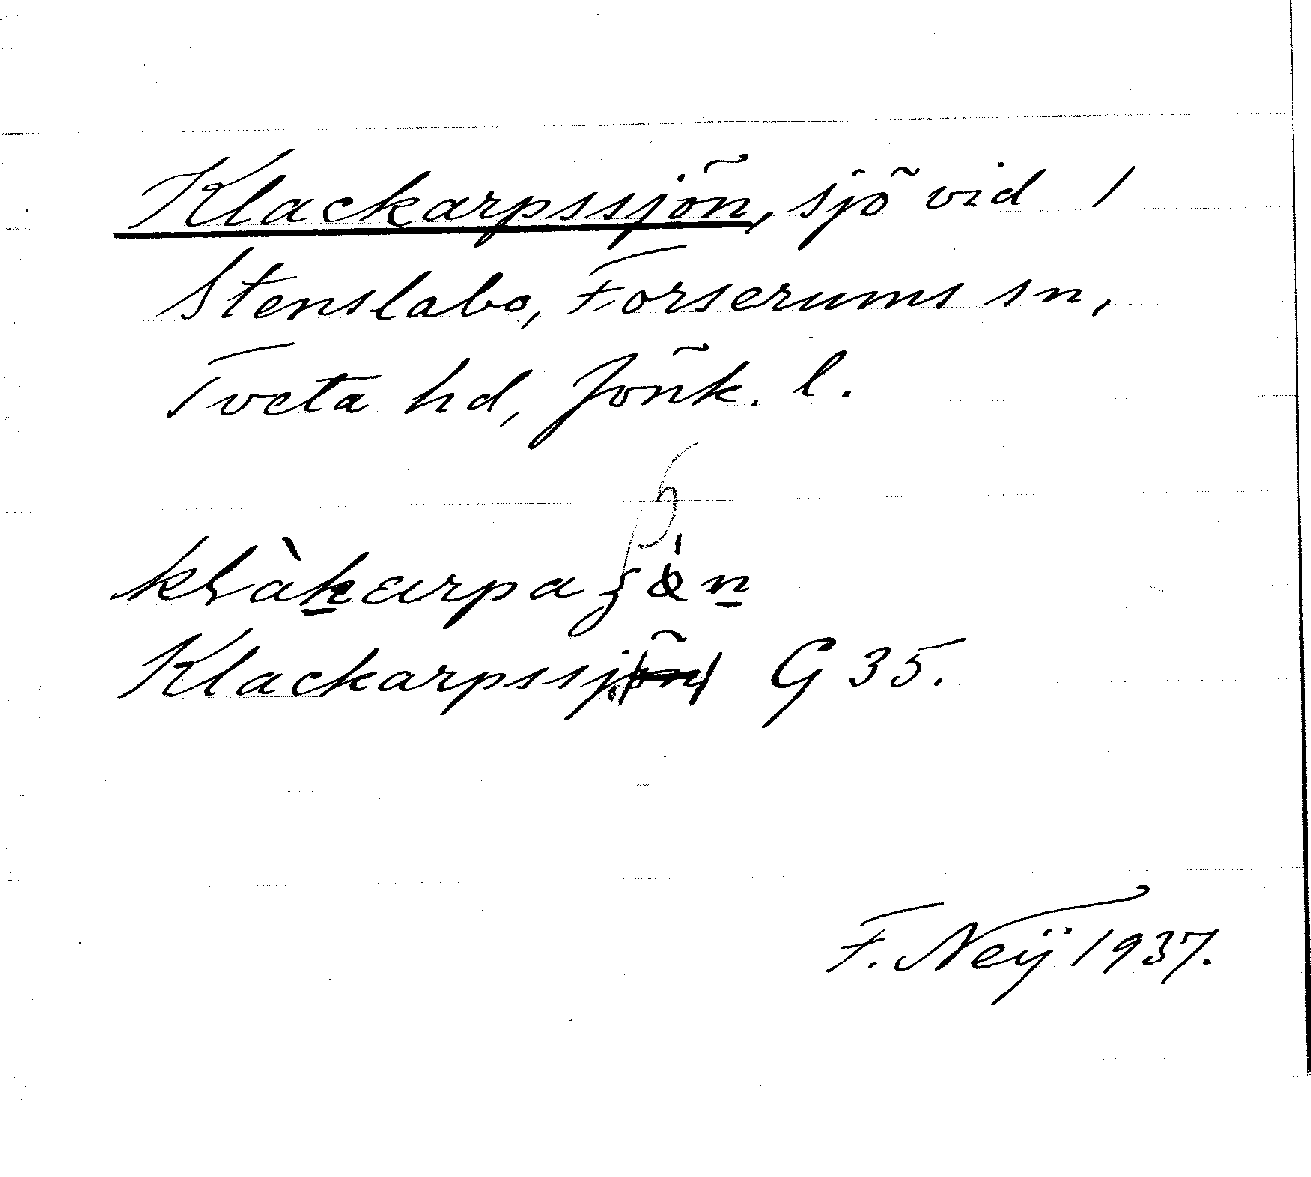 Klackarpssjön, sjö vid 1
Stenslabo, Forserums sn,
Tveta hd, Jönk. l.
Klackarpssjön G 35.
F. Neÿ 1937.